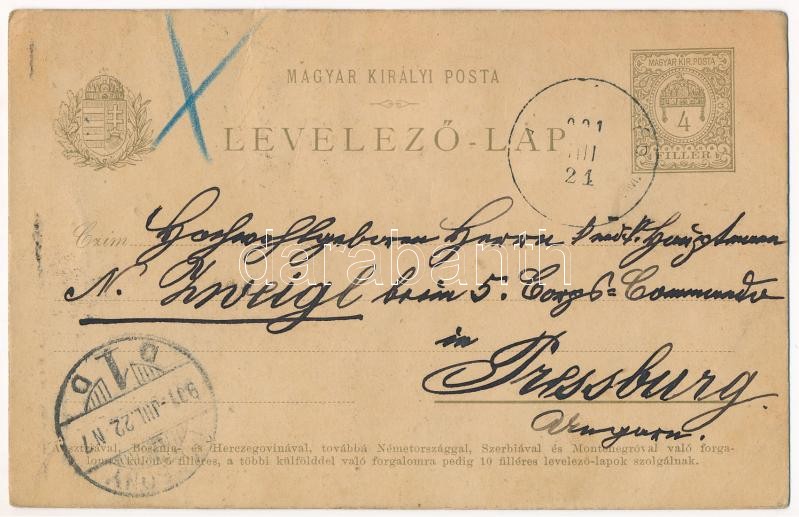 MAGYAR KIRÁLYI POSTA
LEVELEZŐ-LAP
MAGYAR KIR. POSTA
4
FILLER
901
JUL
21
Czim
Hochwohlgeboren Herrn Hauptmann
N. Zweigl beim 5. Corps=Commando
in
Pressburg.
Ungarn.
darabanth
D 1 D
901-JUL. 22. N 7
Ausztriával, Bosznia- és Herczegovinával, továbbá Németországgal, Szerbiával és Montenegróval való forga-
lomra külön 5 filléres, a többi külfölddel való forgalomra pedig 10 filléres levelező-lapok szolgálnak.